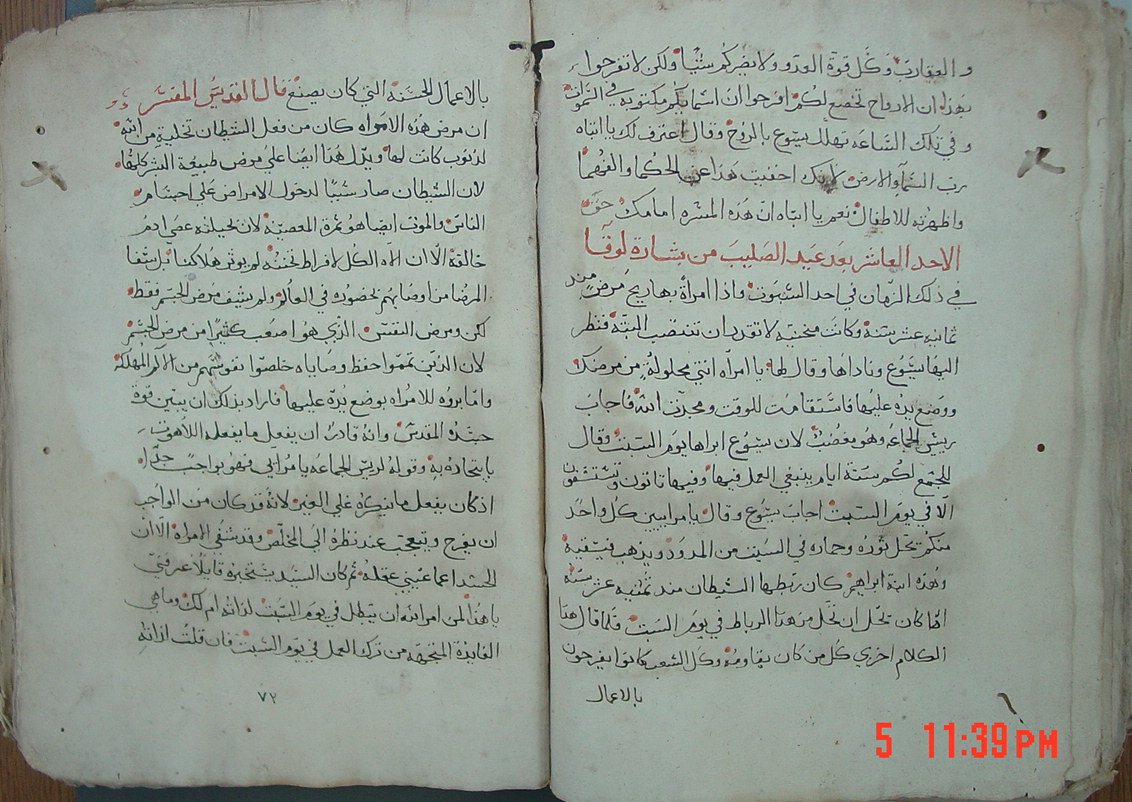 والعقارب وكل قوة العدو ولا يضركم شيئا ولكن لا تفرحوا
بهذا ان الارواح تخضع لكم افرحوا ان اسمايكم مكتوبه في السموات
وفي تلك الساعه تهلل يسوع بالروح وقال اعترف لك يا ابتاه
رب السماء والارض لانك اخفيت هذا عن الحكما والفهما
واظهرته للاطفال نعم يا ابتاه ان هذه المسره امامك حق
الاحد العاشر بعد عيد الصليب من بشارة لوقا
في ذلك الزمان في احد السبوت واذا امرأة بها ريح مرض مند
ثمانيه عشر سنة وكانت منحنيه لا تقدر ان تنتصب البته فنظر
اليها يسوع وناداها وقال لها يا امرأه انتي محلولة من مرضك
ووضع يده عليها فاستقامت للوقت ومجدت الله فاجاب
ريس الجماعه وهو مغضب لان يسوع ابراها يوم السبت وقال
للجمع لكم ستة ايام ينبغي العمل فيها وفيها تاتون وتستشفون
الا في يوم السبت اجاب يسوع وقال يا مراييين كل واحد
منكم يحل ثوره وحماره في السبت من المدود ويذهب فيسقيه
وهذه ابنة ابراهيم كان ربطها الشيطان مند ثمنيه عشر سنه
اما كان يحل ان تحل من هذا الرباط في يوم السبت فلما قال هذا
الكلام اخزي كل من كان يقاومه وكل الشعب كانوا يفرحون
بالاعمال
بالاعمال الحسنه التي كان يصنع قال القديس المفسر
ان مرض هذه الامراه كان من فعل الشيطان تخلية من الله
لذنوب كانت لها ويدل هذا ايضا علي مرض طبيعة البشر كلها
لان الشيطان صار سببا لدخول الامراض علي اجسام
الناس والموت ايضا هو ثمرة المعصيه لان بحيلته عصي ادم
خالقه الا ان الاه الكل لافراط تحننه لم يوثر هلاكنا بل شفا
المرضا من اوصابهم بحضوره في العالم ولم يشف مرض الجسم فقط
لكن ومرض النفس الذي هو اصعب كثيرا من مرض الجسم
لان الذين تمموا حفظ وصاياه خلصوا نفوسهم من الالام المهلكه
واما بروه للامراه بوضع يده عليها فاراد بذلك ان يبين قوة
جسده المقدس وانه قادر ان يفعل ما يفعله اللاهوت
باتحاده به وقوله لريس الجماعه يا مرايي فهو بواجب جدا
اذ كان يفعل ما ينكره علي الغير لانه قد كان من الواجب
ان يفرح ويتعجب عند نظره الي المخلص وقد شفي الامراه الا ان
الحسد اعما عيني عقله ثم كان السيد يستخبره قايلا عرفني
يا هذا لمن امر الله ان يبطل في يوم السبت لذاته ام لك وما هي
الفايدة المتجهه من ترك العمل في يوم السبت فان قلت ان الله
٧٢
5 11:39 PM